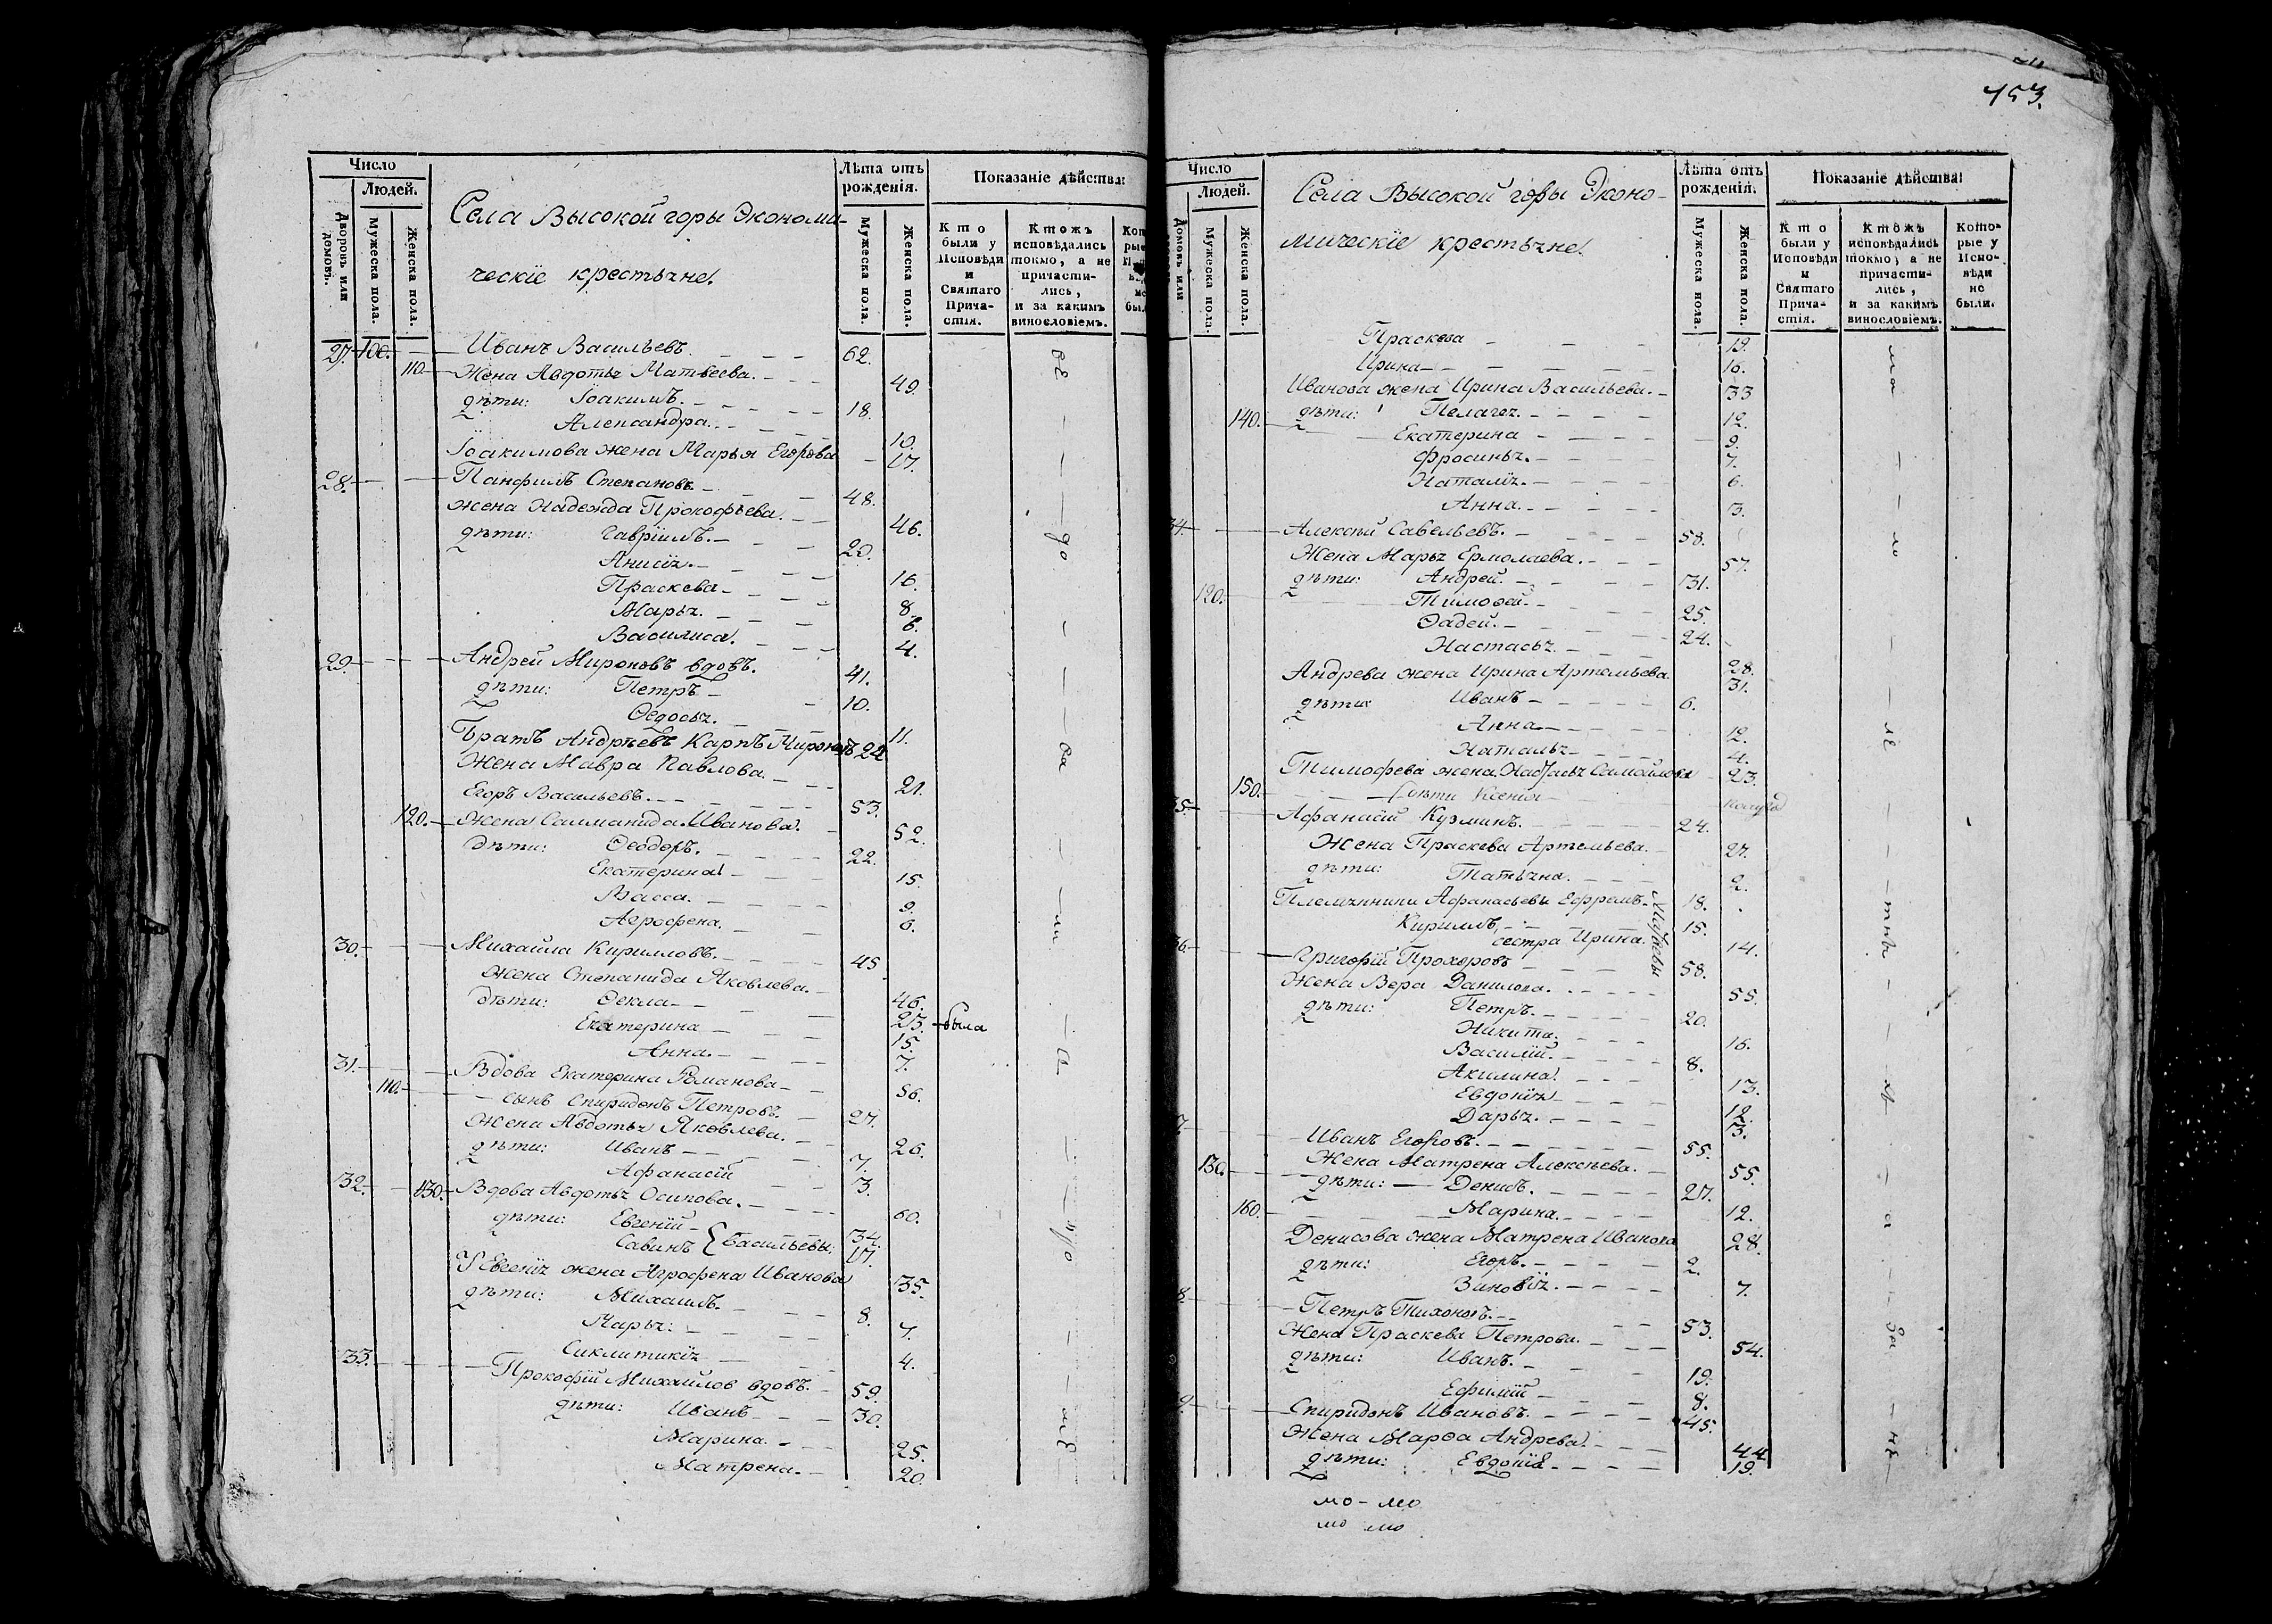 153.
Число
Людей.
Дворовъ или домовъ.
Мужеска пола.
Женска пола.
Села Высокой горы Экономи-
ческіе крестьяне.
Лѣта отъ рожденія.
Мужеска пола.
Женска пола.
Показаніе дѣйства:
Кто были у Исповѣди и Святаго Прича-стія.
Ктожъ исповѣдались токмо, а не причасти-лись, и за какимъ винословіемъ.
27. 100. Иванъ Васильевъ. 62.
110. Жена Авдотья Матвеева. 49.
дѣти: Іоакимъ. 18.
Александра. 10.
Іоакимова жена Марья Егорова 17.
28. Панфилъ Степановъ 48.
жена Надежда Прокофьева. 46.
дѣти: Гавріилъ. 20.
Анисія. 16.
Праскева 8.
Марья. 6.
Василиса. 4.
29. Андрей Мироновъ вдовъ. 41.
дѣти: Петръ 10.
Ѳедосья. 11.
Братъ Андрѣевъ Карпъ Мироновъ 24
Жена Мавра Павлова. 21.
Егоръ Васильевъ. 53.
120. Жена Саламанида Иванова. 52.
дѣти: Ѳеодоръ. 22.
Екатерина 15.
Васса. 9.
Агрофена. 6.
30. Михайла Кириловъ. 45
Жена Степанида Яковлева. 46.
дѣти: Ѳекла 23. была
Екатерина 15.
Анна. 7.
31. Вдова Екатерина Романова 56.
110. сынъ Спиридонъ Петровъ. 27.
Жена Авдотья Яковлева. 26.
дѣти: Иванъ 7.
Афанасій 3.
32. 130. Вдова Авдотья Осипова. 60.
дѣти: Евгеній 34.
Савинъ { Васильевы. 17.
У Евгенія жена Агрофена Иванова 35.
дѣти: Михаилъ. 8.
Марья: 7.
Сиклитикія 4.
33. Прокофій Михаиловъ вдовъ. 59.
дѣти: Иванъ 30.
Марина. 25.
Матрена. 20.
Число
Людей.
Домовъ или
Мужеска пола.
Женска пола.
Села Высокой горы Эконо-
мическіе крестьяне.
Лѣта отъ рожденія.
Мужеска пола.
Женска пола.
Показаніе дѣйства:
Кто были у Исповѣди и Святаго Прича-стія.
Ктожъ исповѣдались токмо, а не причасти-лись, и за какимъ винословіемъ.
Кото-рые у Испо-вѣди не были.
Праскева 19.
Ирина 16.
Иванова жена Ирина Васильева. 33
140. дѣти: Пелагея. 12.
Екатерина 9.
Фросинья. 7.
Наталія. 6.
Анна. 3.
34. Алексѣй Савельевъ. 58.
Жена Марья Ермолаева. 57.
дѣти: Андрей. 31.
120. Тимоѳей. 25.
Ѳадей. 24.
Настасья. 28.
Андрева жена Ирина Артемьева. 31.
дѣти: Иванъ 6.
Анна 12.
Наталья 4.
Тимофева жена Настасья Самойлова 23.
150. дѣти Ксенія
35. Афанасій Курминъ. 24.
Жена Праскева Артемьева. 27.
дѣти: Татьяна. 2.
Племянники Афанасьевы Ефремъ. 18.
Кирилъ, 15.
сестра Ирина. 14.
36. Григорій Прохоровъ 58.
Жена Вера Данилова. 55.
дѣти: Петръ. 20.
Никита. 16.
Василій. 8.
Акилина. 13.
Евдокія 12.
Дарья. 3.
7. Иванъ Егоровъ. 55.
Жена Матрена Алексѣева. 55.
130. дѣти: Денисъ. 27.
160. Марина. 12.
Денисова жена Матрена Иванова 28.
дѣти: Егоръ. 2.
Зиновія. 7.
8. Петръ Тихоновъ. 53.
Жена Праскева Петрова. 54.
дѣти: Иванъ. 19.
Ефимій 8.
9. Спиридонъ Ивановъ. 45.
Жена Марѳа Андрева. 44
дѣти: Евдокія 19.
мо-мо
мо мо